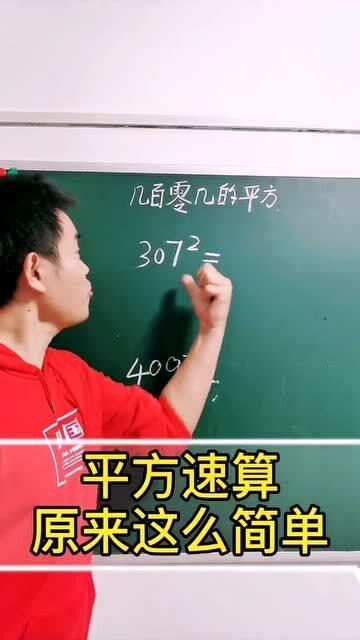 几百零几的平方
307²=
平方速算
原来这么简单